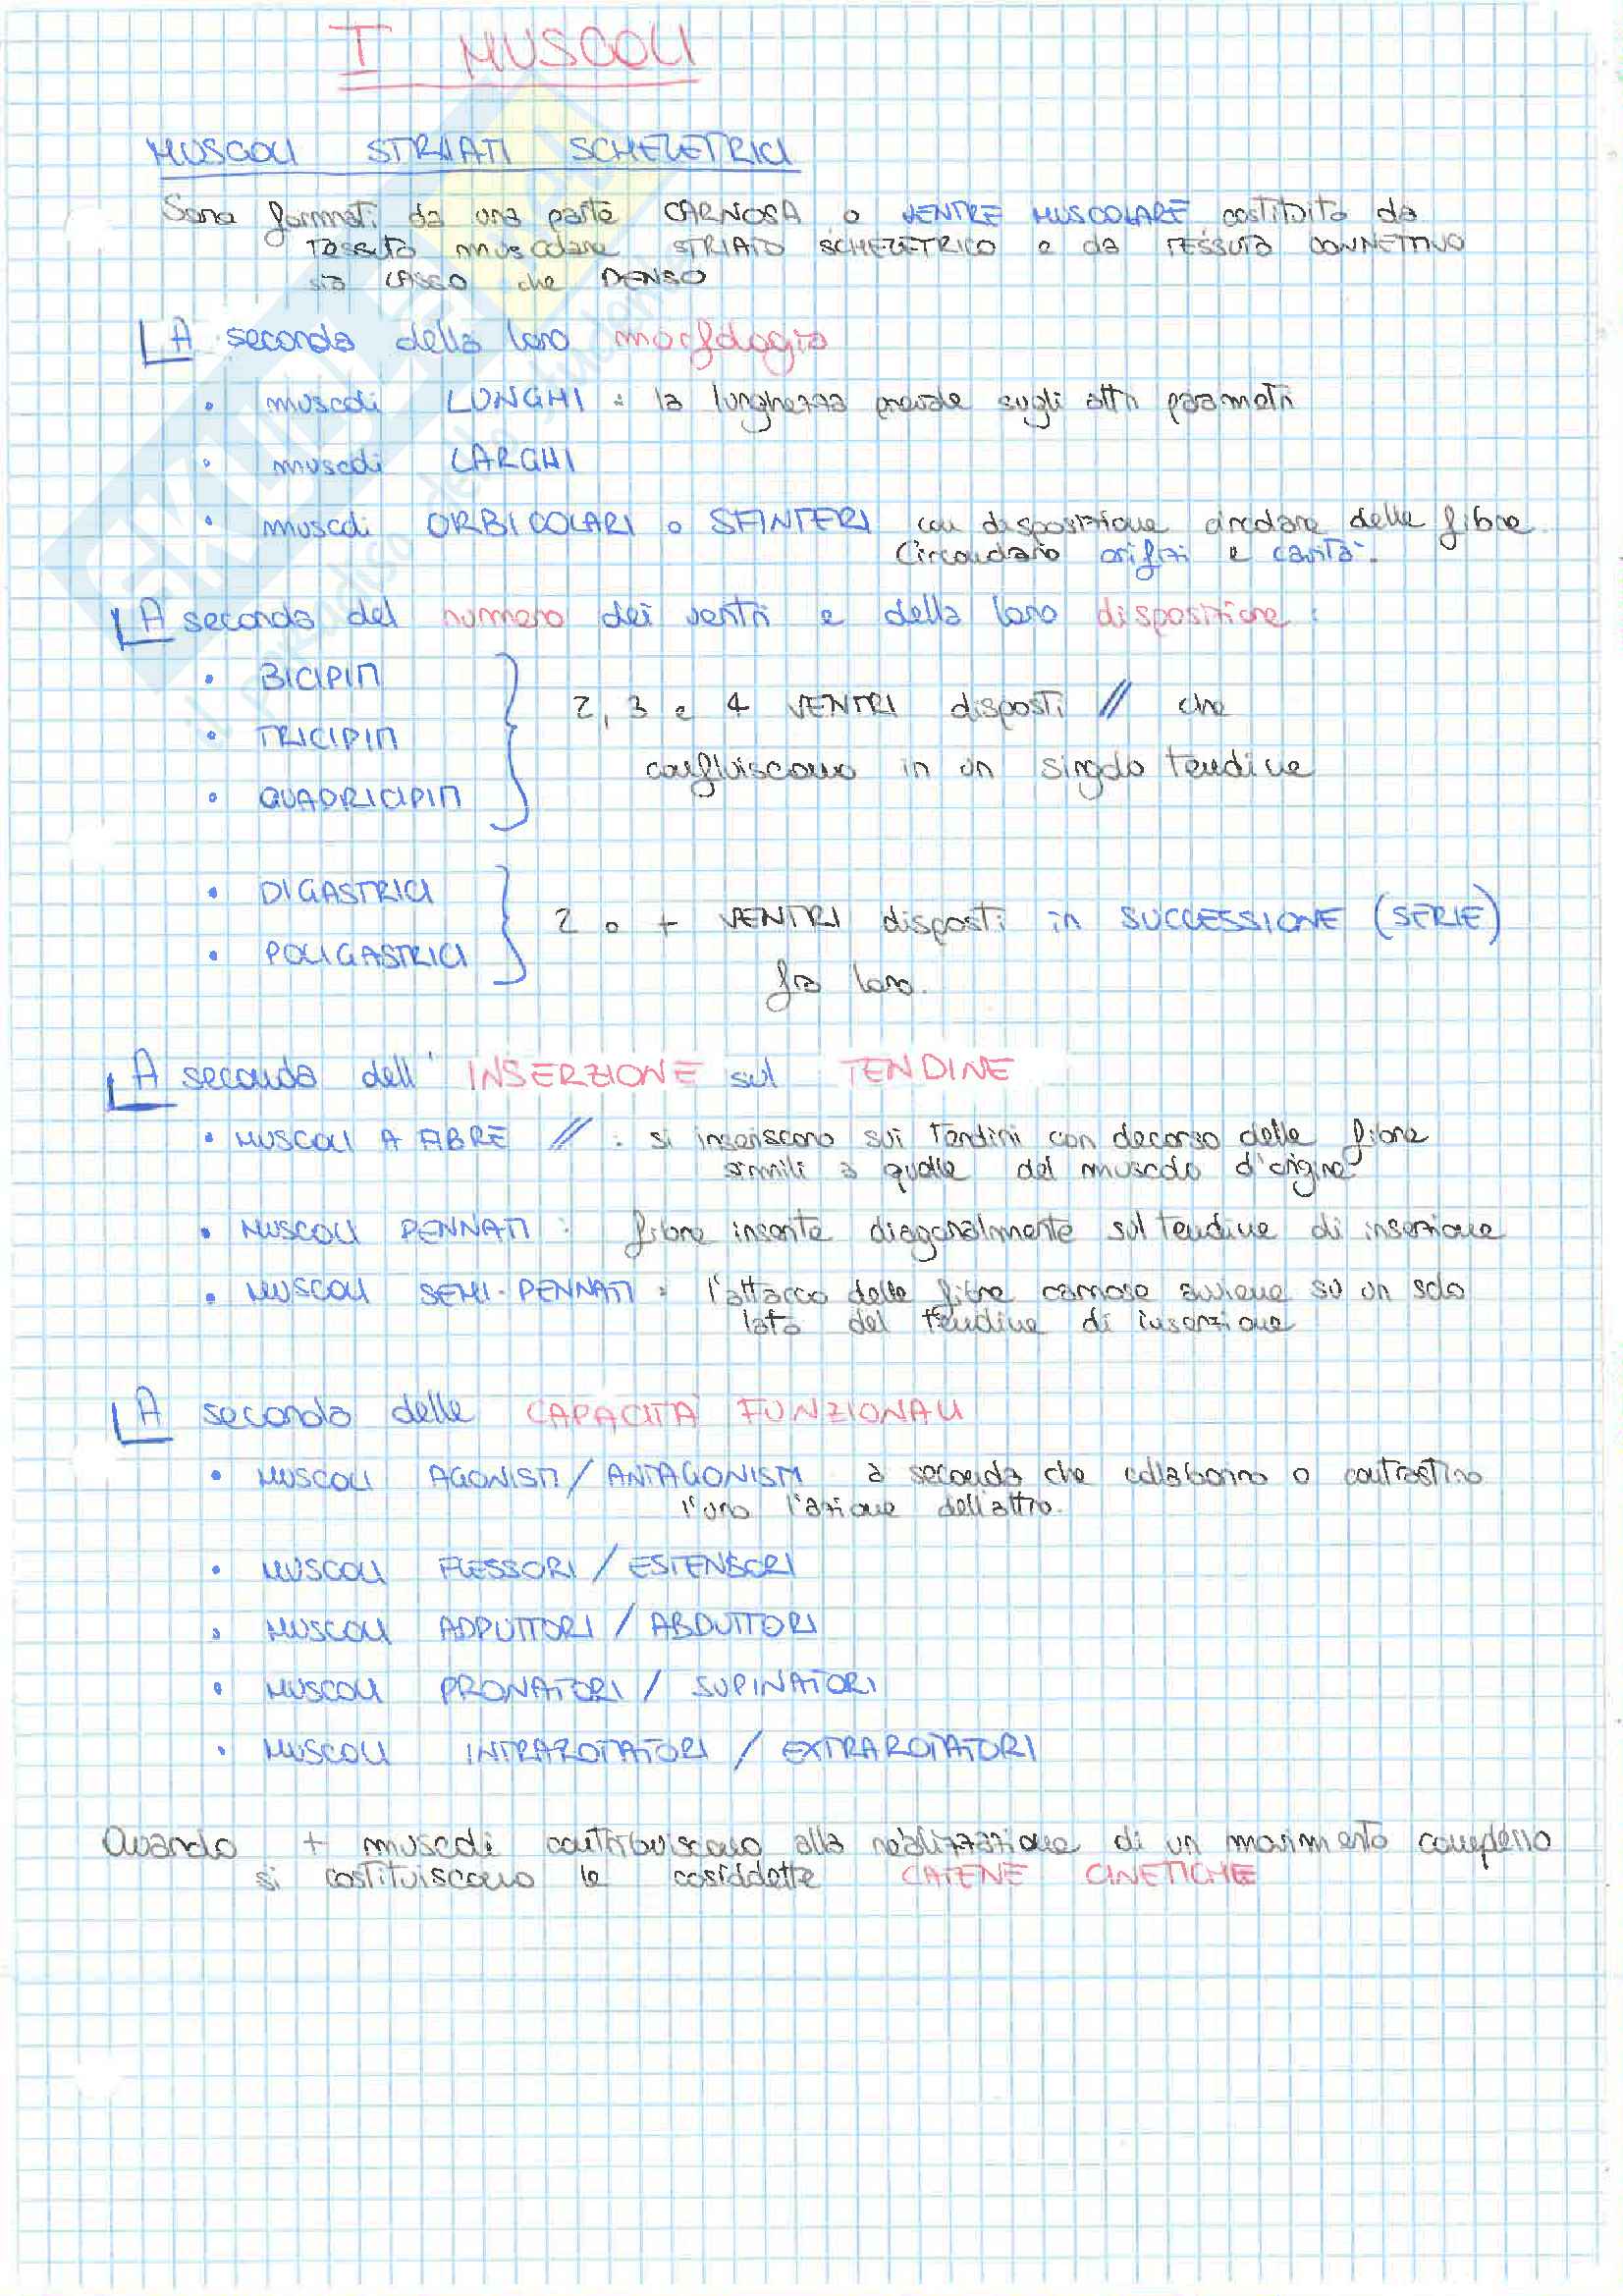 I MUSCOLI
MUSCOLI STRIATI SCHELETRICI
Sono formati da una parte CARNOSA o VENTRE MUSCOLARE costituito da
tessuto muscolare STRIATO SCHELETRICO e da TESSUTO CONNETTIVO
sia LASSO che DENSO
A seconda della loro morfologia
• muscoli LUNGHI : la lunghezza prevale sugli altri parametri
• muscoli LARGHI
• muscoli ORBICOLARI o SFINTERI con disposizione circolare delle fibre.
Circondano orifizi e cavità.
A seconda del numero dei ventri e della loro disposizione :
• BICIPITI
• TRICIPITI
• QUADRICIPITI
2, 3 e 4 VENTRI disposti // che
confluiscono in un singolo tendine
• DIGASTRICI
• POLIGASTRICI
2 o + VENTRI disposti in SUCCESSIONE (SERIE)
fra loro.
A seconda dell' INSERZIONE sul TENDINE
• MUSCOLI A FIBRE // : si inseriscono sui tendini con decorso delle fibre
simili a quelle del muscolo d'origine
• MUSCOLI PENNATI : fibre inserite diagonalmente sul tendine di inserzione
• MUSCOLI SEMI-PENNATI : l'attacco delle fibre carnose avviene su un solo
lato del tendine di inserzione
A seconda delle CAPACITÀ FUNZIONALI
• MUSCOLI AGONISTI / ANTAGONISTI a seconda che collaborino o contrastino
l'uno l'azione dell'altro.
• MUSCOLI FLESSORI / ESTENSORI
• MUSCOLI ADDUTTORI / ABDUTTORI
• MUSCOLI PRONATORI / SUPINATORI
• MUSCOLI INTRAROTATORI / EXTRAROTATORI
Quando + muscoli contribuiscono alla realizzazione di un movimento complesso
si costituiscono le cosiddette CATENE CINETICHE